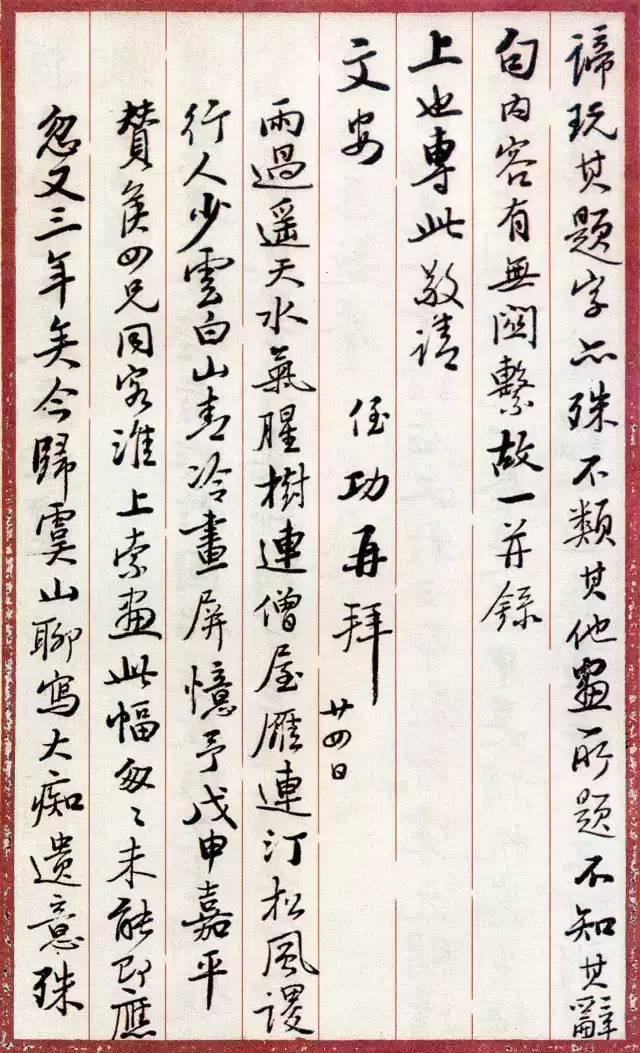 諦玩其題字亦殊不類其他畫所題不知其辭
句内容有無關繫故一并錄
上也專此敬請
文安
侄功再拜
廿四日
雨過遥天水氣腥樹連僧屋雁連汀松風謖
行人少雲白山青冷畫屏憶予戊申嘉平
賛侯四兄同客淮上索畫此幅匆〻未能即應
忽又三年矣今歸虞山聊寫大痴遺意殊